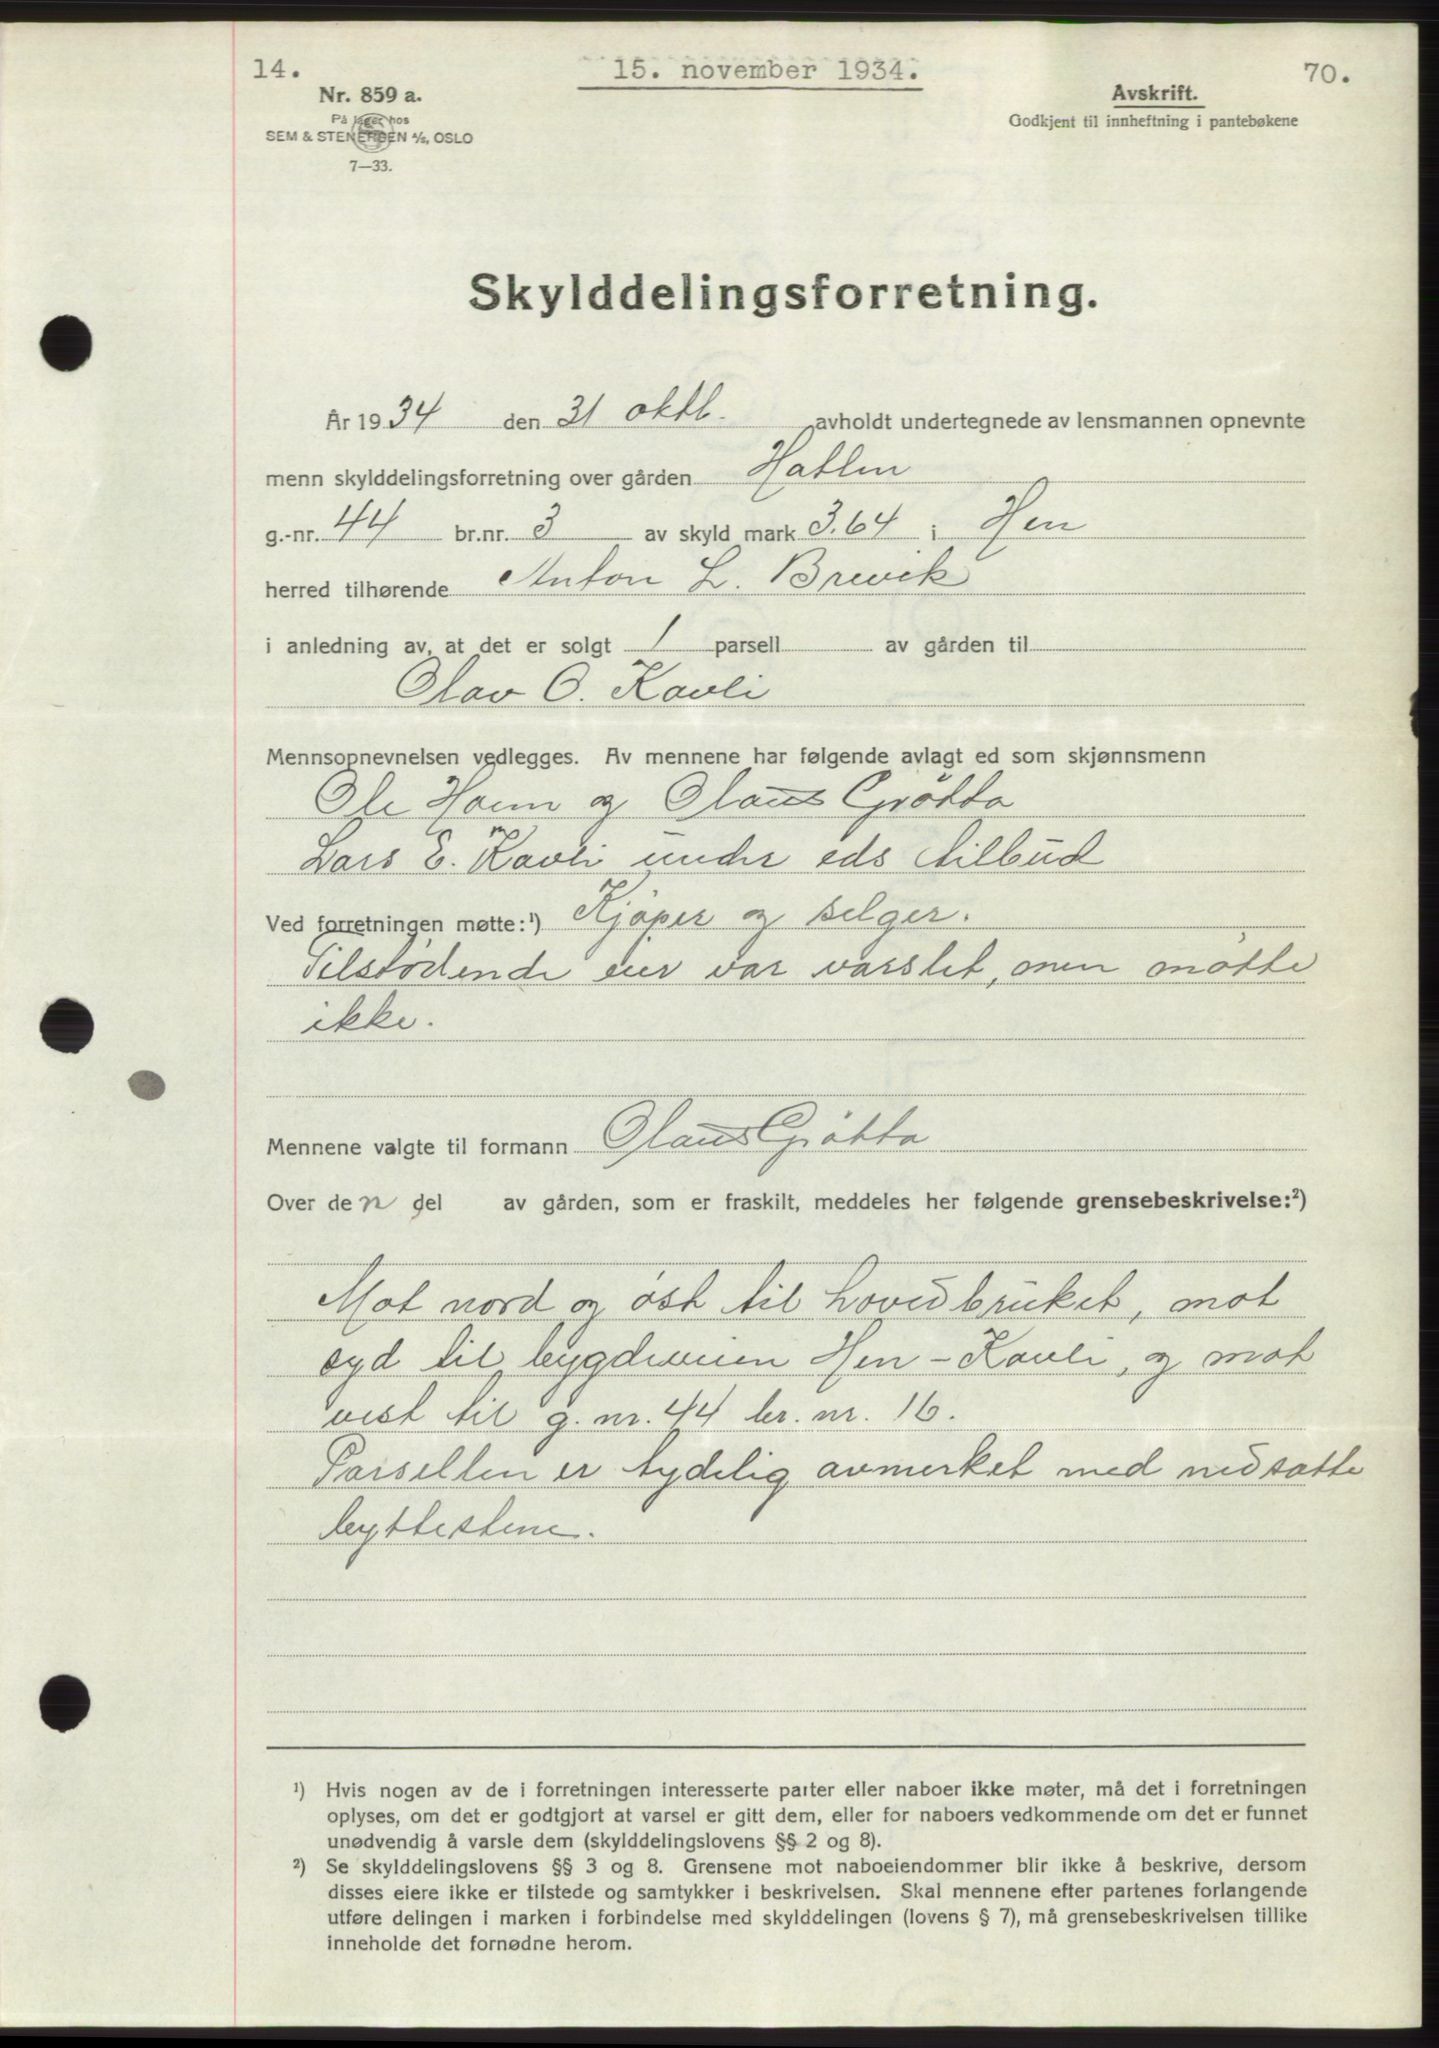 14.
15. november 1934.
70.
Nr. 859 a.
På lager hos
SEM & STENERSEN A/S, OSLO
7—33.
Avskrift.
Godkjent til innheftning i pantebøkene
Skylddelingsforretning.
År 1934 den 31 oktb. avholdt undertegnede av lensmannen opnevnte
menn skylddelingsforretning over gården Hatlen
g.-nr. 44 br.nr. 3 av skyld mark 3.64 i Hen
herred tilhørende Anton L. Brevik
i anledning av, at det er solgt 1 parsell av gården til
Olav O. Kavli
Mennsopnevnelsen vedlegges. Av mennene har følgende avlagt ed som skjønnsmenn
Ole Hoem og Olaus Grötta
Lars E. Kavli under eds tilbud
Ved forretningen møtte:¹) Kjöper og selger.
Tilstödende eier var varslet, men mötte
ikke.
Mennene valgte til formann Olaus Grötta
Over den del av gården, som er fraskilt, meddeles her følgende grensebeskrivelse:²)
Mot nord og öst til hovedbruket, mot
syd til bygdeveien Hen - Kavli, og mot
vest til g. nr. 44 br. nr. 16.
Parsellen er tydelig avmerket med nedsatte
byttestene.
¹) Hvis nogen av de i forretningen interesserte parter eller naboer ikke møter, må det i forretningen
oplyses, om det er godtgjort at varsel er gitt dem, eller for naboers vedkommende om det er funnet
unødvendig å varsle dem (skylddelingslovens §§ 2 og 8).
²) Se skylddelingslovens §§ 3 og 8. Grensene mot naboeiendommer blir ikke å beskrive, dersom
disses eiere ikke er tilstede og samtykker i beskrivelsen. Skal mennene efter partenes forlangende
utføre delingen i marken i forbindelse med skylddelingen (lovens § 7), må grensebeskrivelsen tillike
inneholde det fornødne herom.